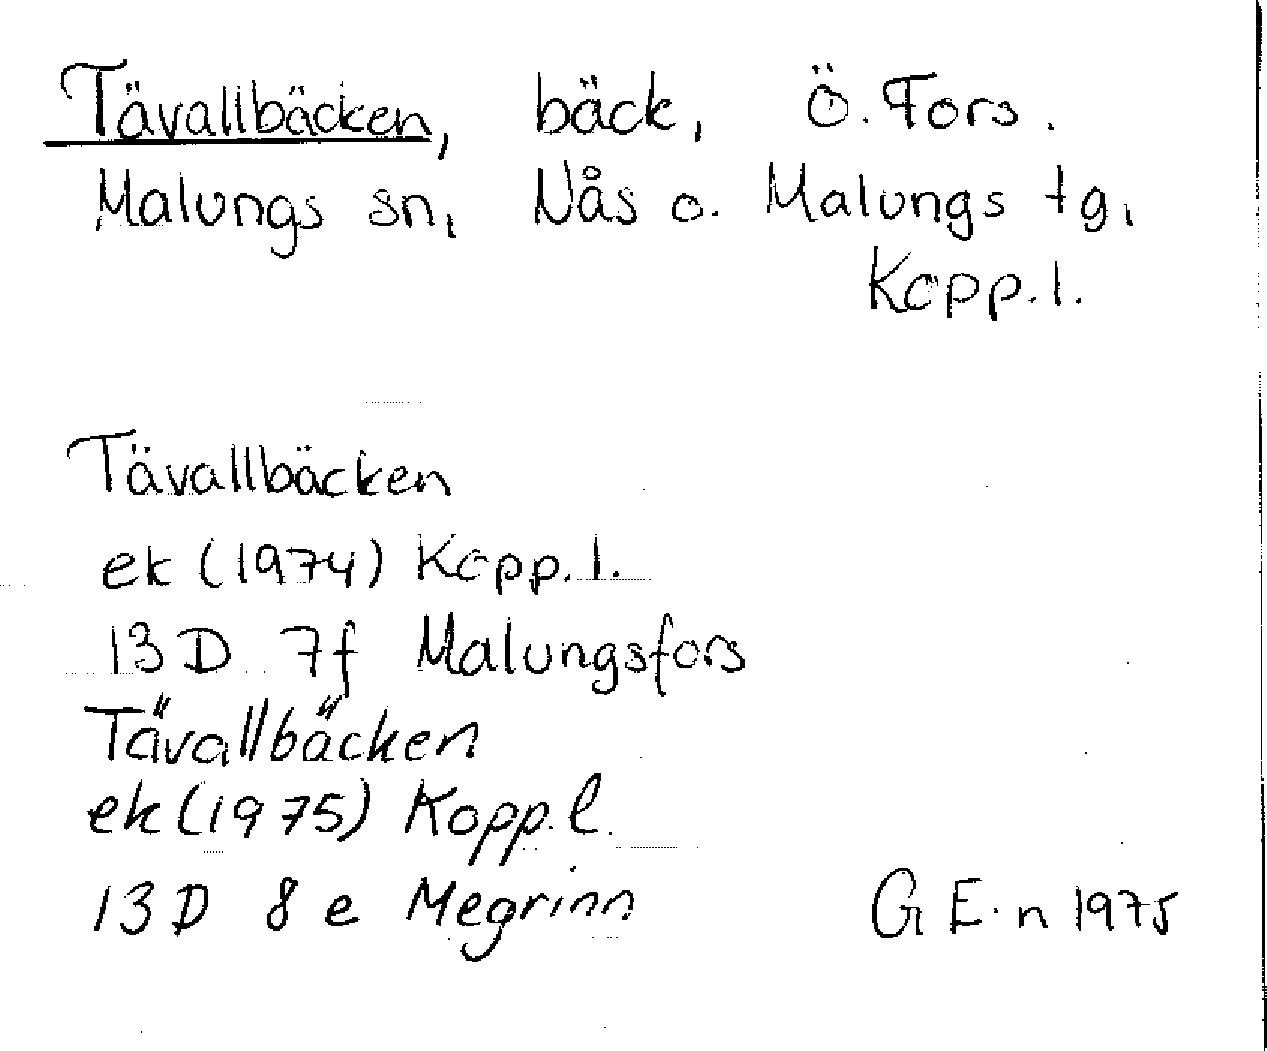 Tävallbäcken, bäck, Ö. Fors.
Malungs sn, Nås o. Malungs tg,
Kopp. l.
Tävallbäcken
ek (1974) Kopp. l.
13 D 7f Malungsfors
Tävallbäcken
ek (1975) Kopp. l.
13 D 8 e Megrinn
G E. n 1975